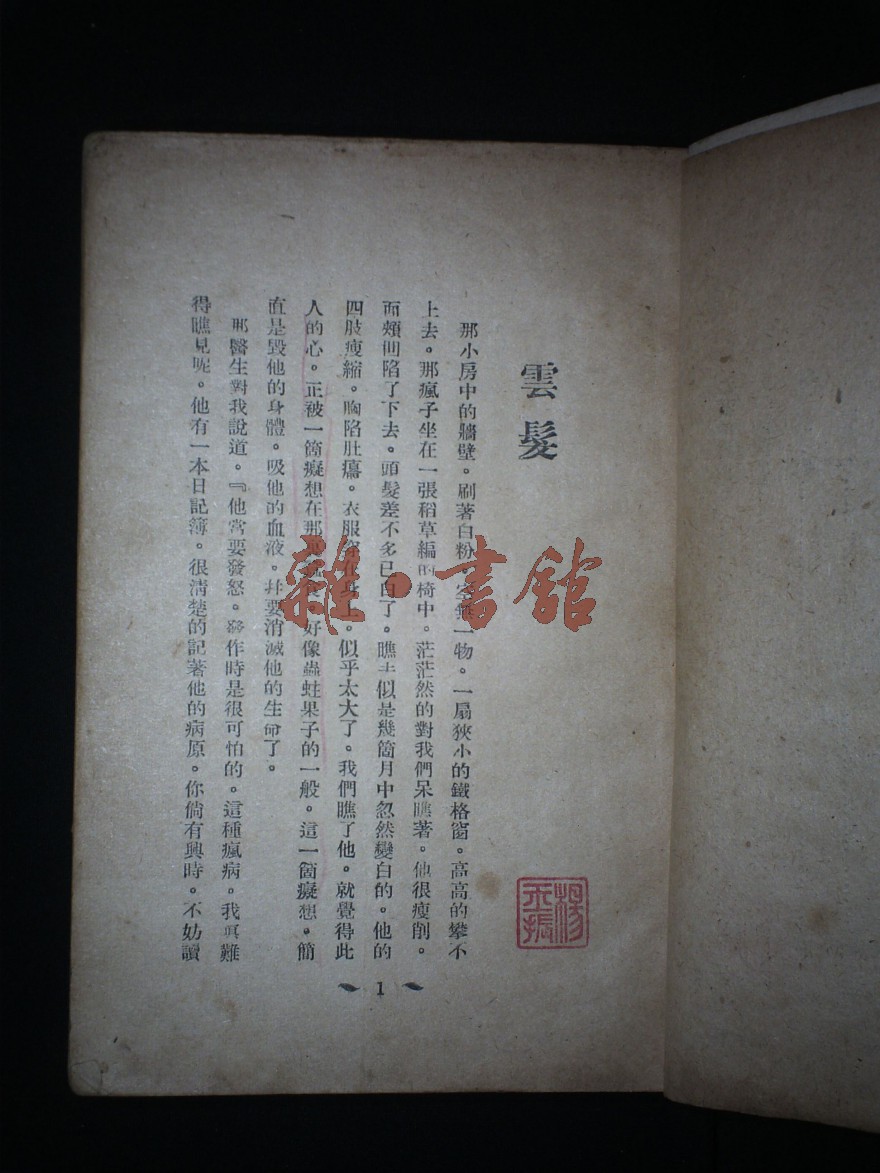 雲髮
那小房中的牆壁。刷著白粉。空無一物。一扇狹小的鐵格窗。高高的攀不
上去。那瘋子坐在一張稻草編的椅中。茫茫然的對我們呆瞧著。他很瘦削。
面頰凹陷了下去。頭髮差不多已白了。瞧去似是幾箇月中忽然變白的。他的
四肢瘦縮。胸陷肚癟。衣服穿在身上。似乎太大了。我們瞧了他。就覺得此
人的心。正被一箇癡想在那裏 食。好像蟲蛀果子的一般。這一箇癡想。簡
直是毀他的身體。吸他的血液。并要消滅他的生命了。
那醫生對我說道。『他常要發怒。發作時是很可怕的。這種瘋病。我真難
得瞧見呢。他有一本日記簿。很清楚的記著他的病原。你倘有興時。不妨讀
1
雜·書館